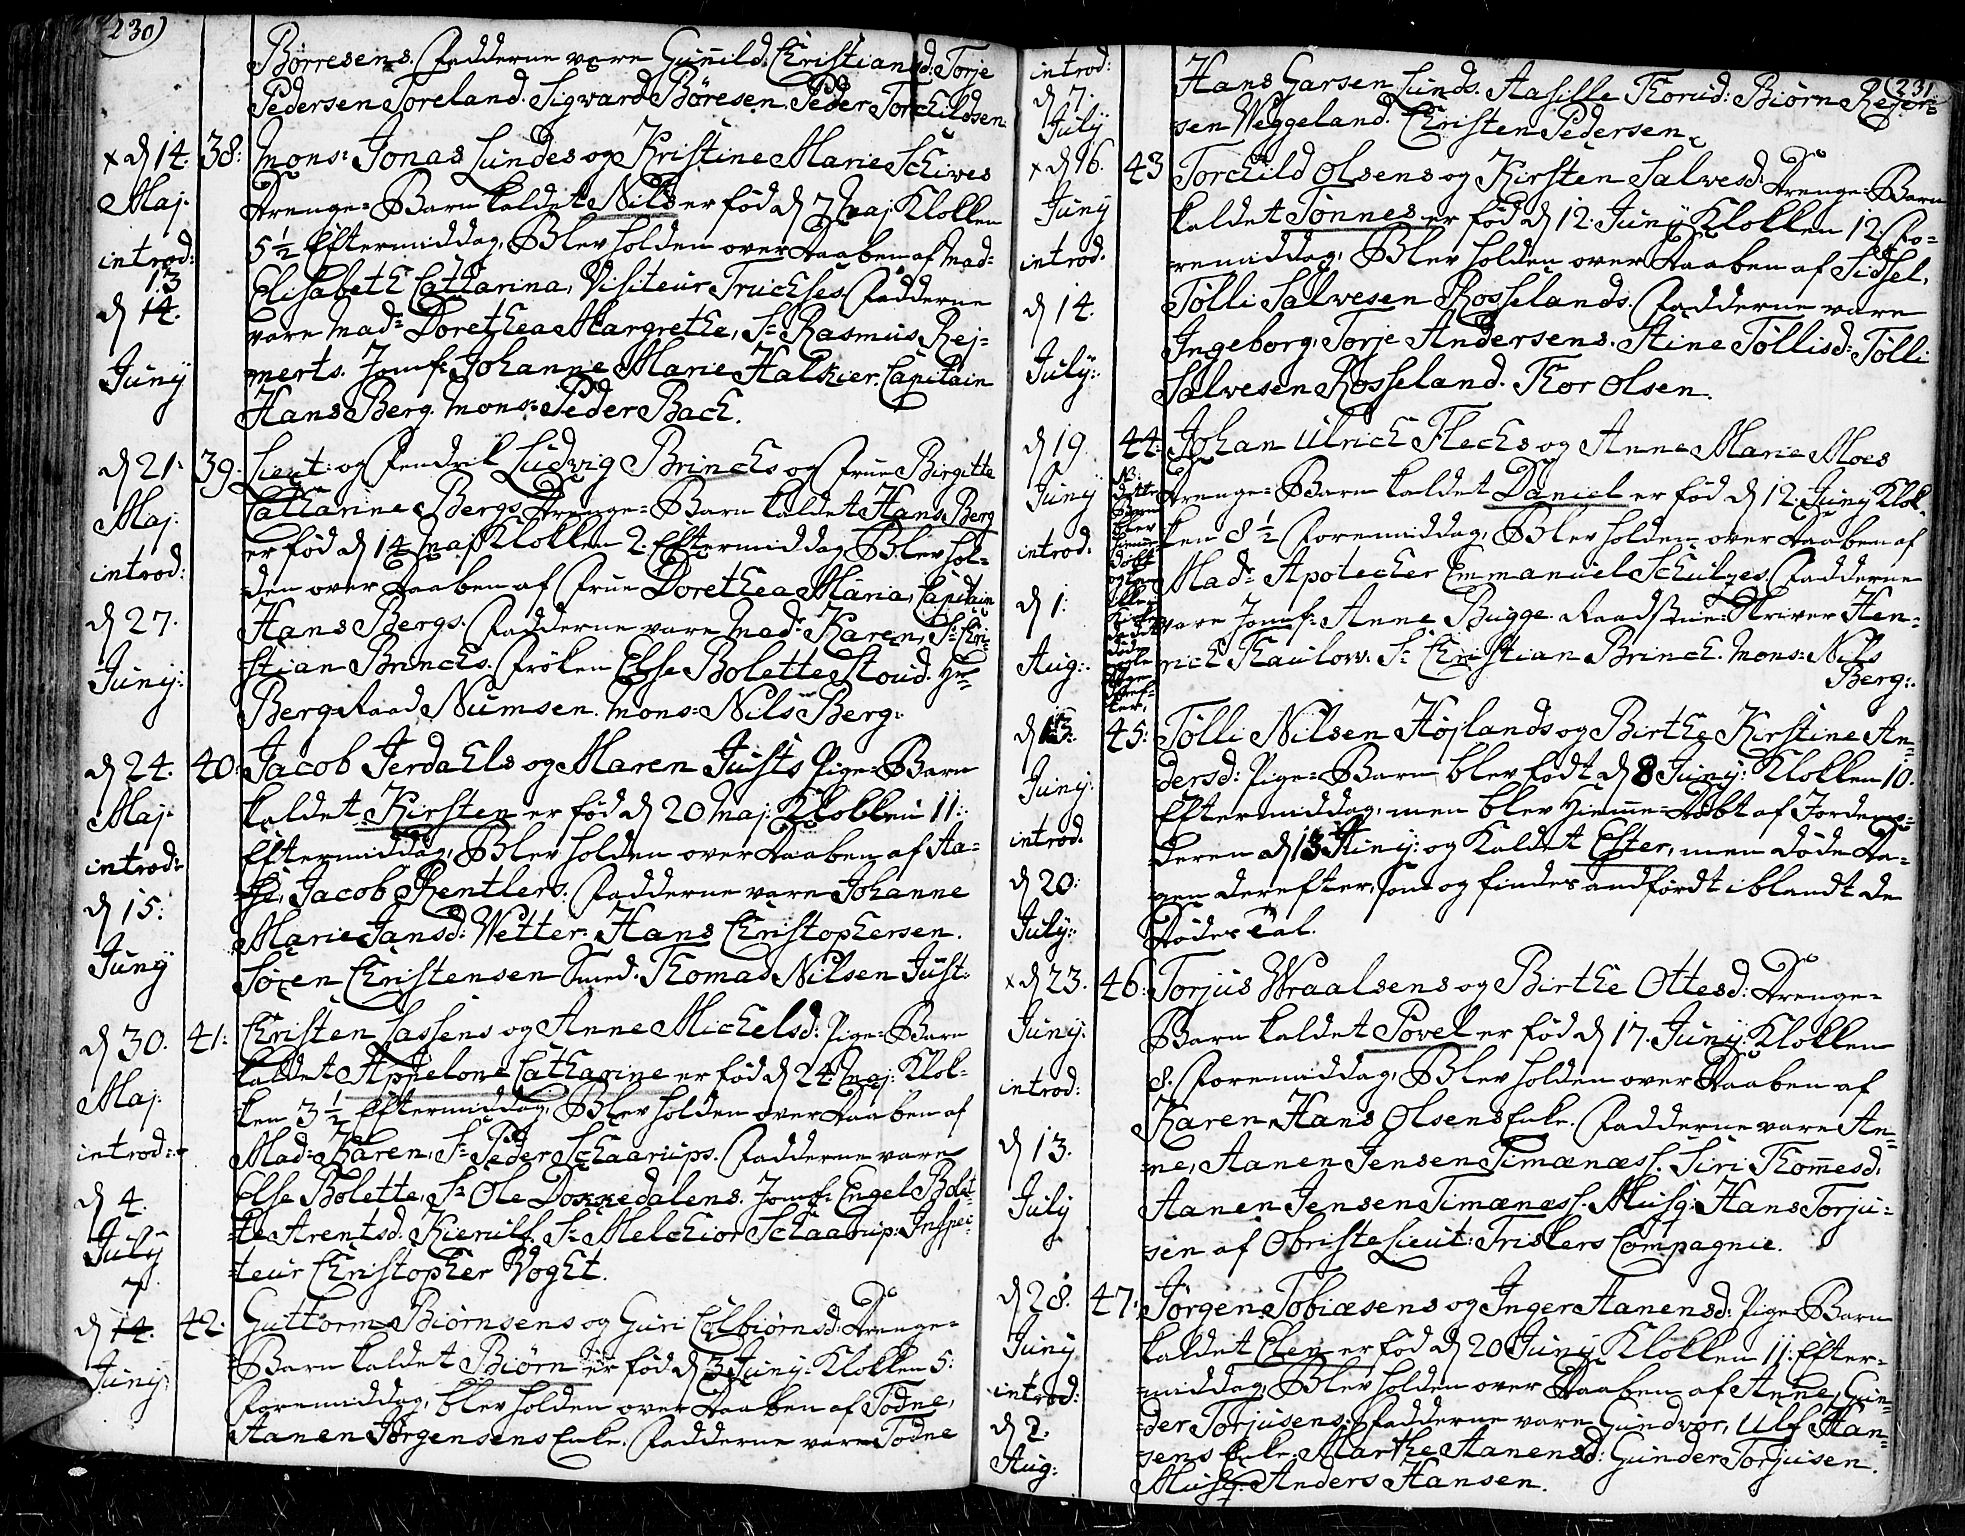 230
Börresens. Fadderne vare Guñild Christiansd: Torje
Pedersen Toreland. Sigvard Böresen. Peder Torchildsen.
x d 14. 38: Mons: Jonas Lundes og Kristine Marie Schives
Maj. Drenge-Barn kaldet Nils er fød d 7 Maj: Klokken
5½ Eftermiddag, Blev holden over Daaben af Mad:
introd: Elisabeth Catharina, Visiteur Truchses. Fadderne
13
d 14. vare Mad: Dorethea Margrethe, Sr Rasmus Rej-
Juny merts. Jomf: Johanne Marie Halkier. Capitain
Hans Berg. Mons: Peder Bach.
d 21: 39: Lieut: og Fendrik Ludvig Brinchs og Frue Birgitte
Maj. Catharine Bergs Drenge-Barn kaldet Hans Berg
er fød d 14 Maj Klokken 2. Eftermiddag Blev hol-
introd: den over Daaben af Frue Dorethea Maria, Capitain
d 27. Hans Bergs. Fadderne vare Mad: Karen, Sr Kri-
Juny: stian Brinchs. Frøken Else Bolette Stoud. Hr
Berg-Raad Numsen. Mons: Nils Berg:
d 24. 40: Jacob Jerdahls og Maren Justs Pige-Barn
Maj. kaldet Kirsten er fød d 20 Maj: Klokken 11:
introd: Eftermiddag, Blev holden over Daaben af Aa-
se, Jacob Rentlers. Fadderne vare Johanne
d 15: Marie Jansd: Vetter. Hans Christophersen.
Juny Sören Christensen Smed. Thomas Nilsen Just:
d 30. 41: Christen Lassens og Anne Michelsd: Pige-Barn
Maj. kaldet Appelone Catharine er fød d 24. Maj: Klok-
ken 3½ Eftermiddag, Blev holden over Daaben af
introd: Mad: Karen, Sr Peder Schaarups. Fadderne vare
d 4. Else Bolette, Sr Ole Doxxedalens. Jomf: Engel Bolet-
July te Arentsd. Kierulf. Sr Melchior Schaarup. Inspec-
teur Christopher Voght.
7.
d 14. 42: Guttorm Biörnsens og Guri Colbiörnsd: Drenge-
Juny: Barn kaldet Biörn er fød d 3 Juny: Klokken 5:
Foremiddag, blev holden over Daaben af Todne,
Aanen Jörgensens Enke. Fadderne vare Todne
231.
introd: Hans Garsen Lunds. Aasille Thorud: Biörn Rejer-
d 7. July sen Veggeland. Christen Pedersen.
x d 16. 43 Torchild Olsens og Kirsten Salvesd: Drenge-Barn
Juny kaldet Tönnes er fød d 12. Juny Klokken 12. Fo-
introd. remiddag, Blev holden over Daaben af Sidsel,
d 14. Tölli Salvesen Rosselands. Fadderne vare
July: Ingeborg, Torje Andersens. Stine Töllisd: Tölli
Salvesen Rosseland. Thor Olsen.
d 19 44: Johan Ulrich Flechs og Anne Marie Moes
Juny Drenge-Barn kaldet Daniel er fød d 12. Juny Klok-
introd: ken 8½ Foremiddag, Blev holden over Daaben af
Mad: Apothecher Emmanuel Schulzes. Fadderne
d 1: vare Jomf: Anne Bugge. Raadstue-Skriver Hen-
Aug: rich Thaulow. Sr Christian Brinch. Mons: Nils
Berg:
d 13: 45: Tölli Nilsen Höjlands og Birthe Kirstine An-
Juny: dersd: Pige-Barn blev født d 8 Juny: Klokken 10.
Eftermiddag, men blev Hieme-Døbt af Jordemo-
introd. deren d 13 Juny: og kaldet Ester, men døde Da-
d 20: gen derefter, som og findes andført iblandt de
July: Dødes Tal.
x d 23. 46: Torjus Wraalsens og Birthe Ottesd: Drenge-
Juny: Barn kaldet Povel er fød d 17. Juny: Klokken
introd: 8. Foremiddag, Blev holden over Daaben af
Karen, Hans Olsens Enke. Fadderne vare An-
d 13. ne, Aanen Jensen Timænæss. Siri Thomesd.
July Aanen Jensen Timænæss. Musq: Hans Torju-
sen af Obriste Lieut: Friskers Compagnie.
d 28. 47: Jörgen Tobiæsens og Inger Aanensd: Pige-Barn
Juny kaldet Elen er fød d 20 Juny Klokken 11: Efter-
introd: middag, Blev holden over Daaben af Anne, Gun-
d 2. der Torjusens. Fadderne vare Gundvor, Ulf Han-
Aug: sens Enke. Marthe Aanensd: Gunder Torjusen.
Musq: Anders Hansen.